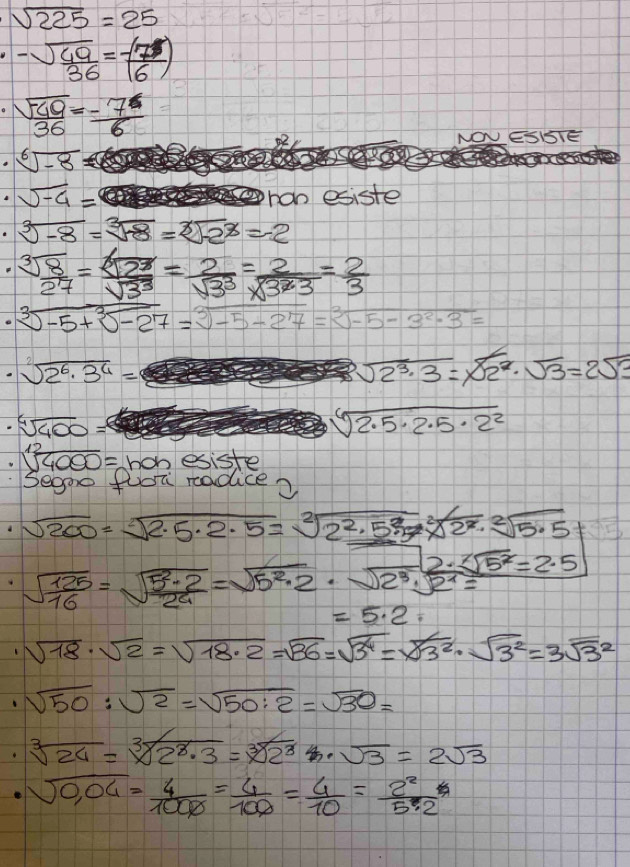 · √225 = 25
· -√49/36 = -(7/6)
· √49/36 = -7/6
NON ESISTE
· ⁶√-8 =
· √-4 = non esiste
· ³√-8 = ³√-8 = ³√-2³ = -2
· ³√8/27 = ³√2³/√3³ = 2/√3³ = 2/√3²·3 = 2/3
· ³√-5 + ³√-27 = ³√-5-27 = ³√-5-3²·3 =
· ²√2⁶·3⁴ = √2³·3 = √2²·√3 = 2√3
· ⁴√400 = ⁴√2·5·2·5·2²
· ¹²√4000 = non esiste
Segno fuori radice
· √200 = √2·5·2·5 = ²√2²·5²· ²√2²·²√5·5 =
2·√5² = 2·5
· √125/16 = √5²·2/24 = √5²·2 · √2³·√2¹ =
= 5·2·
· √18·√2 = √18·2 = √36 = √3⁴ = √3²·√3² = 3√3²
· √50 : √2 = √50:2 = √30 =
· ³√24 = ³√2³·3 = ³√2³ ·√3 = 2√3
· √0,04 = 4/1000 = 4/100 = 4/10 = 2²/5·2